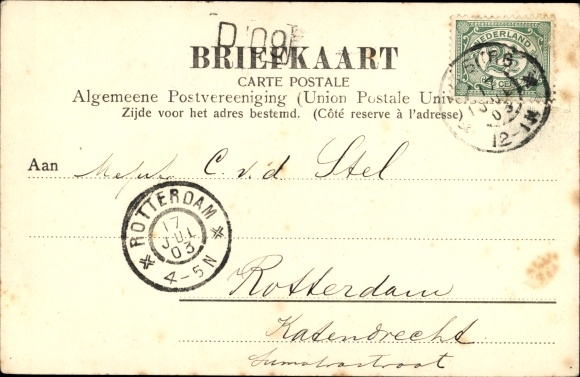 BRIEFKAART
CARTE POSTALE
Algemeene Postvereeniging (Union Postale Univers
Zijde voor het adres bestemd. (Côté reserve à l'adresse)
NEDERLAND
03
12-1
Aan C. v. d. Stel
ROTTERDAM
17
JUL
03
4-5N
Rotterdam
Katendrecht
Sumatrastraat